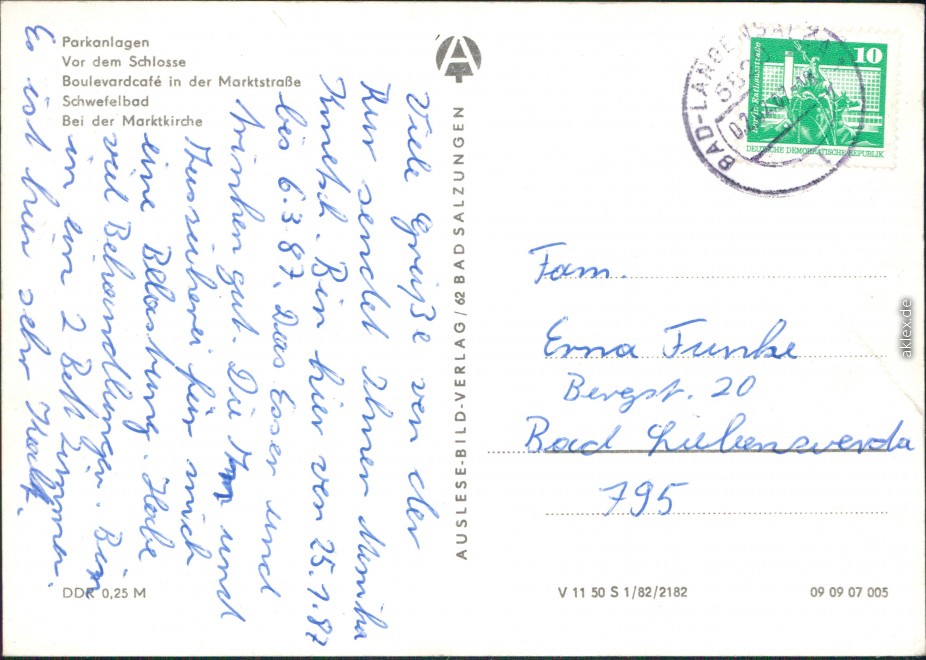 Parkanlagen
Vor dem Schlosse
Boulevardcafé in der Marktstraße
Schwefelbad
Bei der Marktkirche
Viele Grüße von der
Kur sendet Ihnen
Kunetsch. Bin hier von 25.1.87
bis 6.3.87. Das Essen und
trinken gut. Die An und
Ausziehrei für mich
eine Belastung. Habe
viel Behandlungen. Bin
in ein 2 Bett Zimmer.
Es ist hier sehr Kalt.
DDR 0,25 M
AUSLESE-BILD-VERLAG/62 BAD SALZUNGEN
BAD-LANGENSALZA
10
DEUTSCHE DEMOKRATISCHE REPUBLIK
Fam.
Erna Funke
Bergst. 20
Bad Liebenwerda
795
V 11 50 S 1/82/2182
09 09 07 005
aklex.de